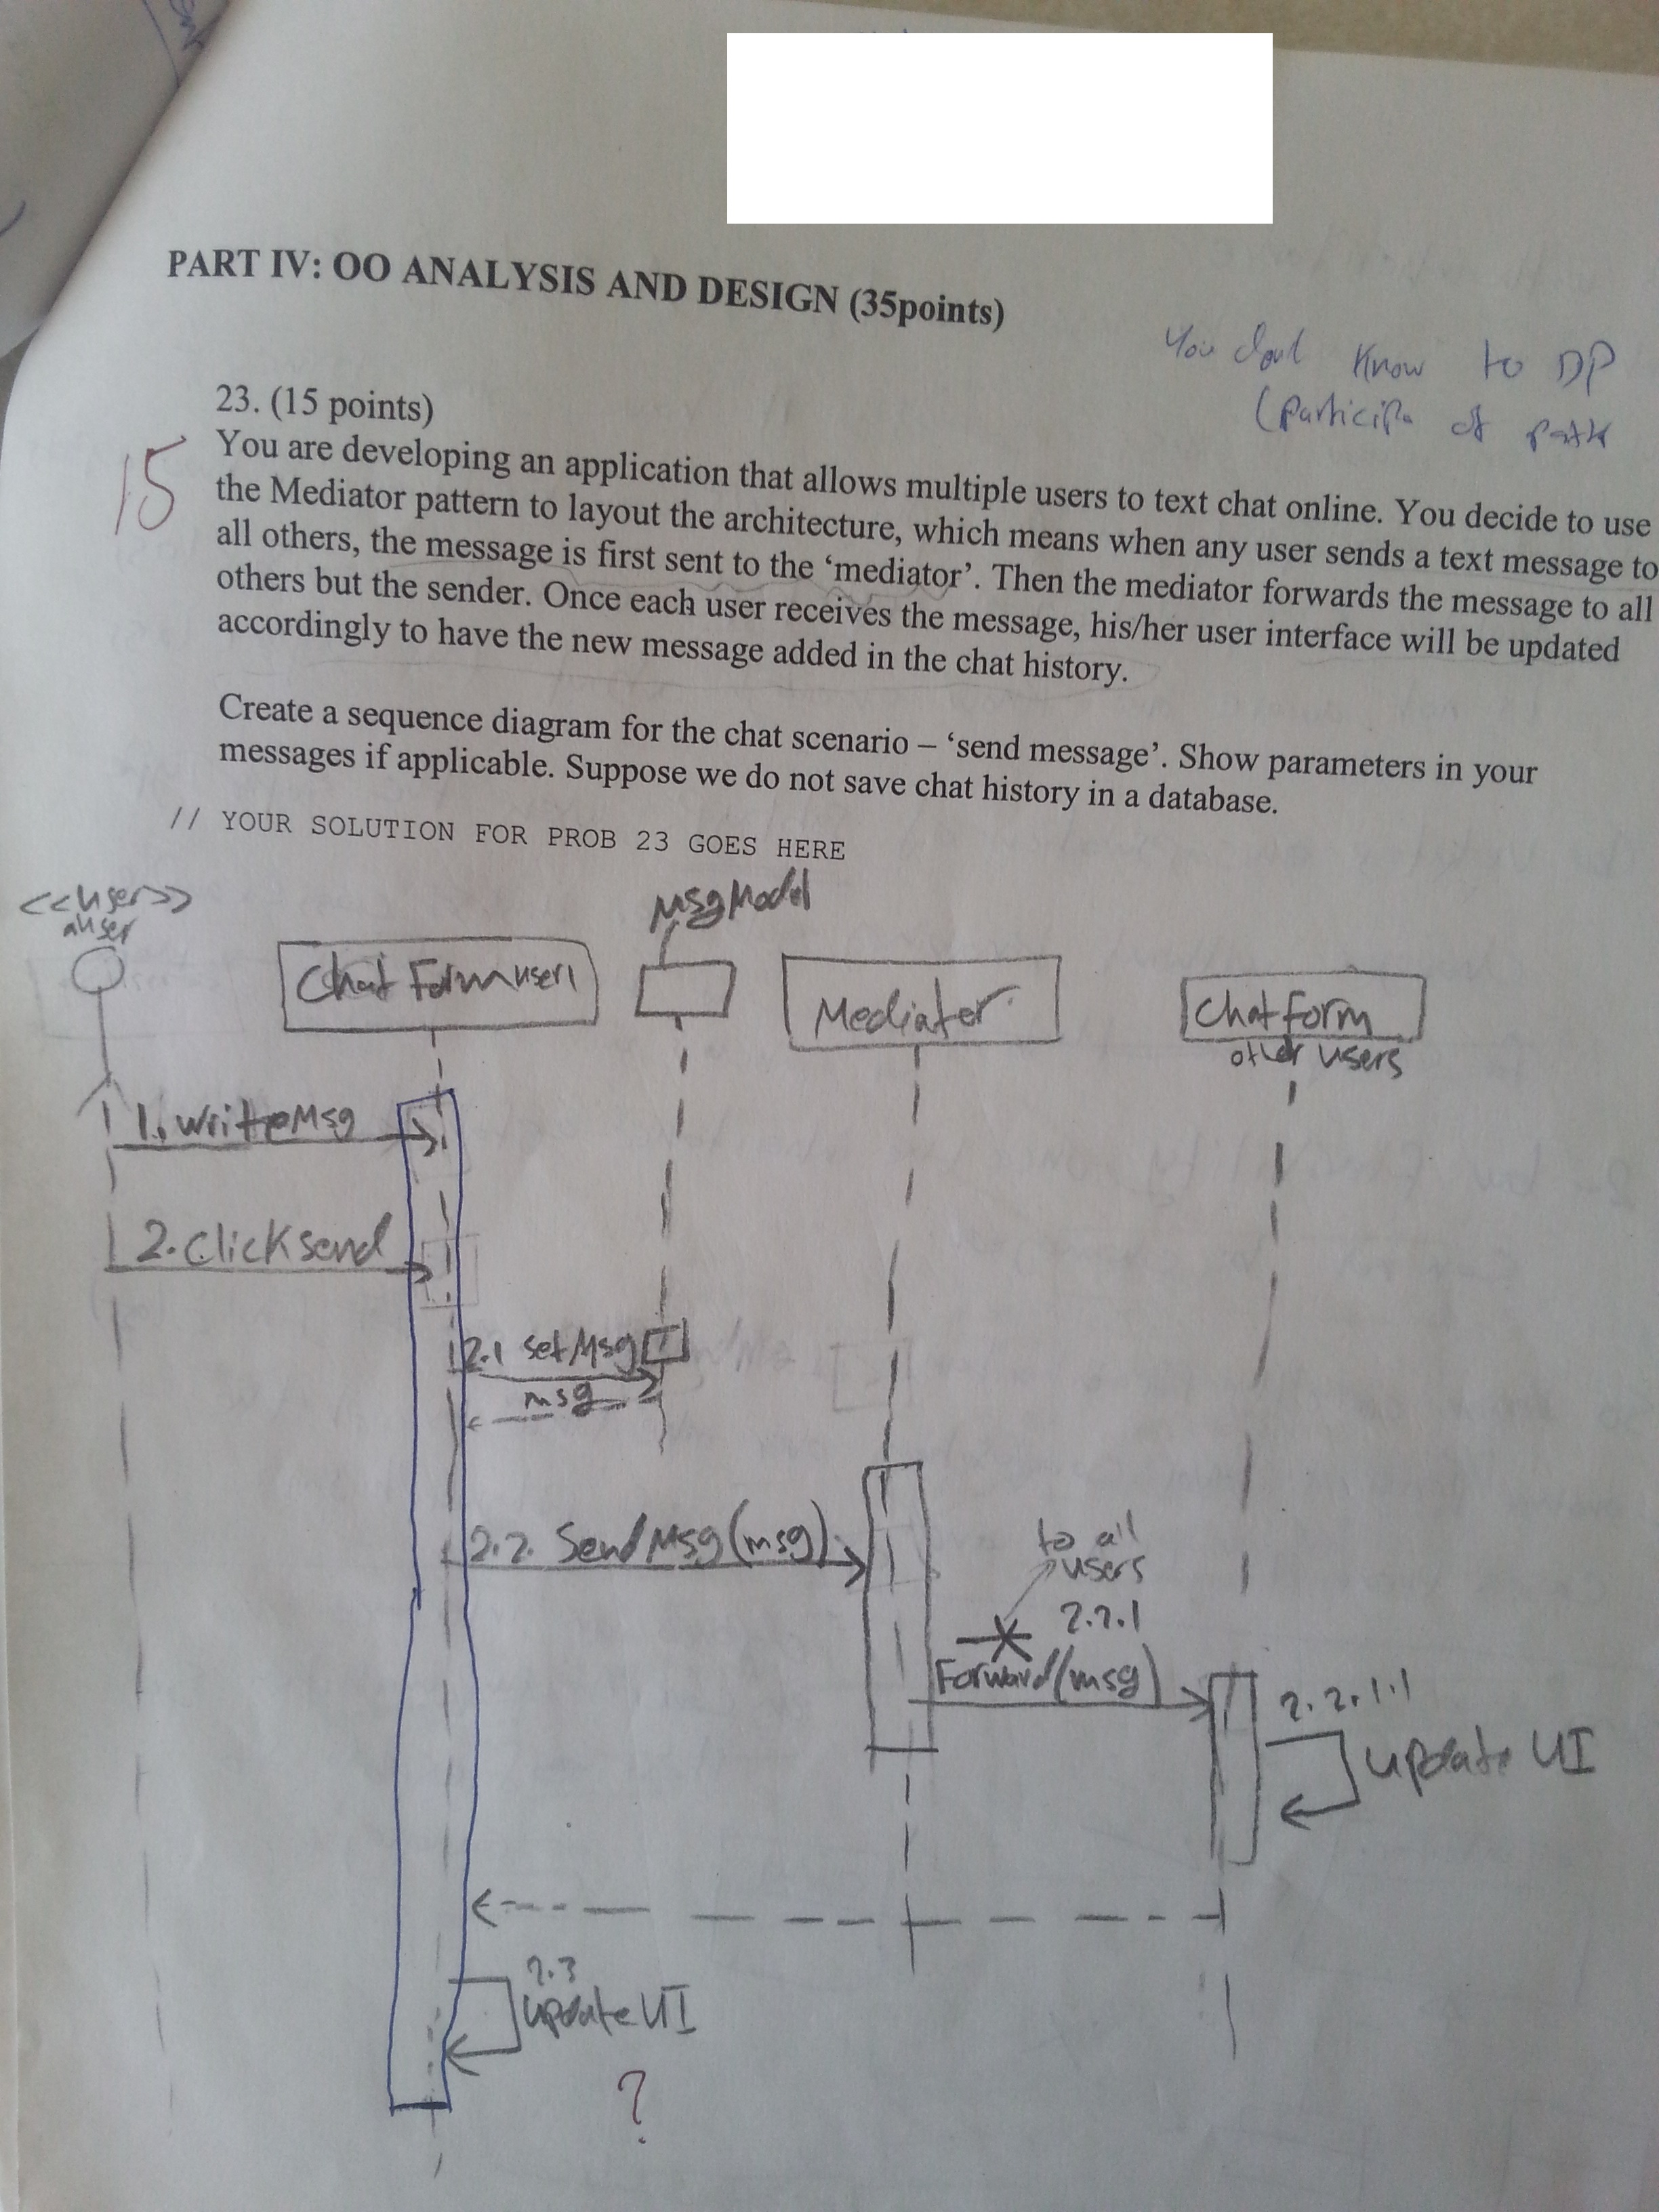 PART IV: OO ANALYSIS AND DESIGN (35points)
You dont know to DP
(Participa of
23. (15 points)
15
You are developing an application that allows multiple users to text chat online. You decide to use
the Mediator pattern to layout the architecture, which means when any user sends a text message to
all others, the message is first sent to the ‘mediator’. Then the mediator forwards the message to all
others but the sender. Once each user receives the message, his/her user interface will be updated
accordingly to have the new message added in the chat history.
Create a sequence diagram for the chat scenario – ‘send message’. Show parameters in your
messages if applicable. Suppose we do not save chat history in a database.
// YOUR SOLUTION FOR PROB 23 GOES HERE
<<user>>
auser
MsgModel
Chat Formuser1
Mediator
Chatform
other users
1. writeMsg
2. Clicksend
2.1 setMsg
msg
2.2. SendMsg(msg)
to all
users
2.2.1
Forward(msg)
2.2.1.1
update UI
2.3
update UI
?